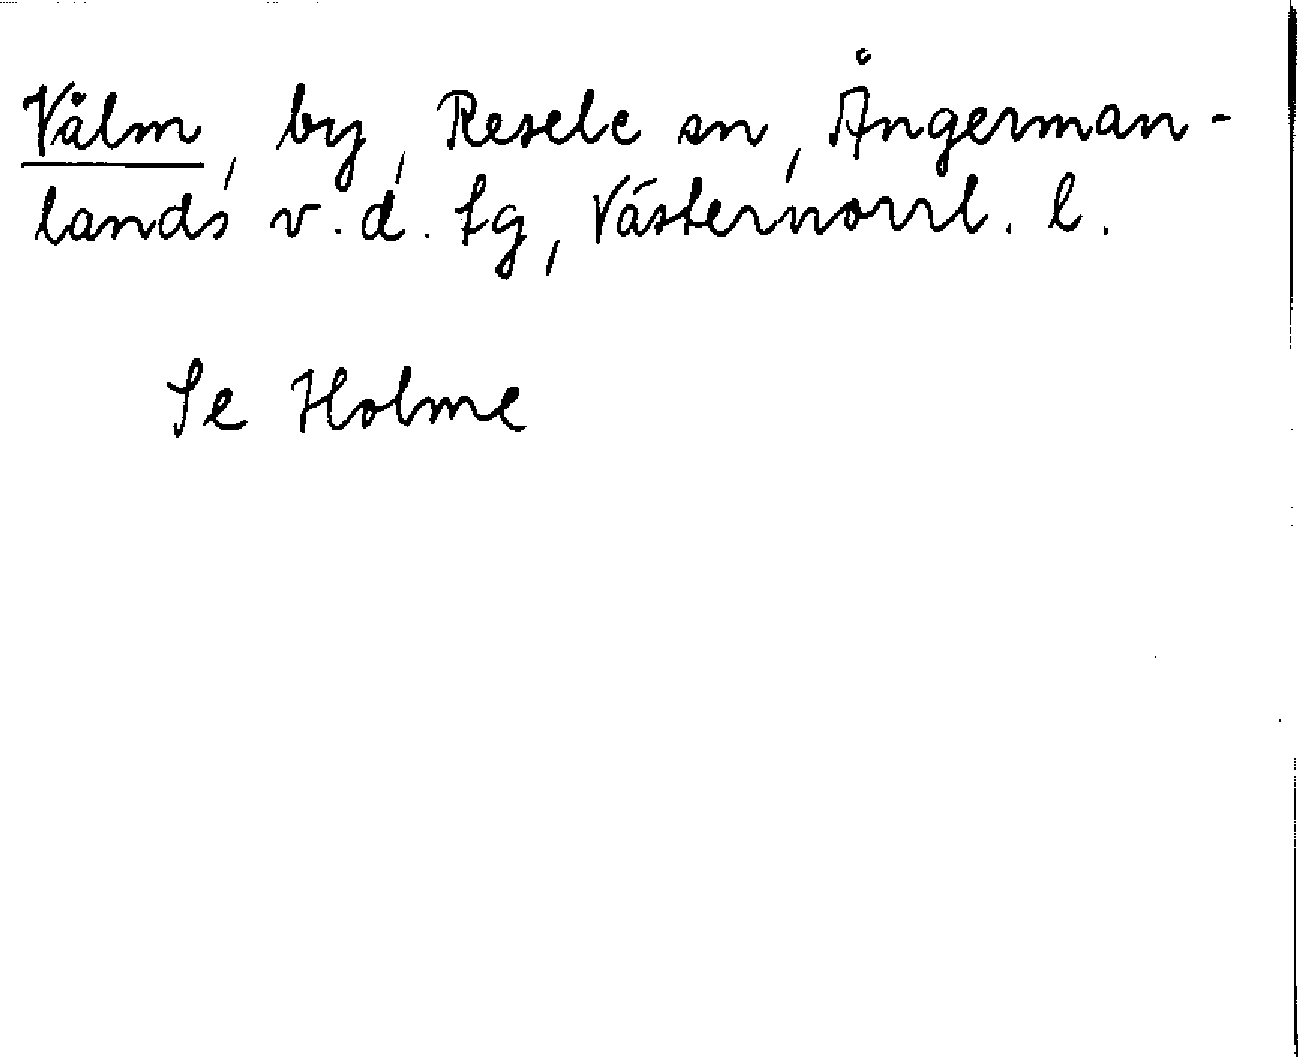 Vålm, by, Resele sn, Ångerman-
lands v.d. tg, Västernorrl. l.
Se Holme